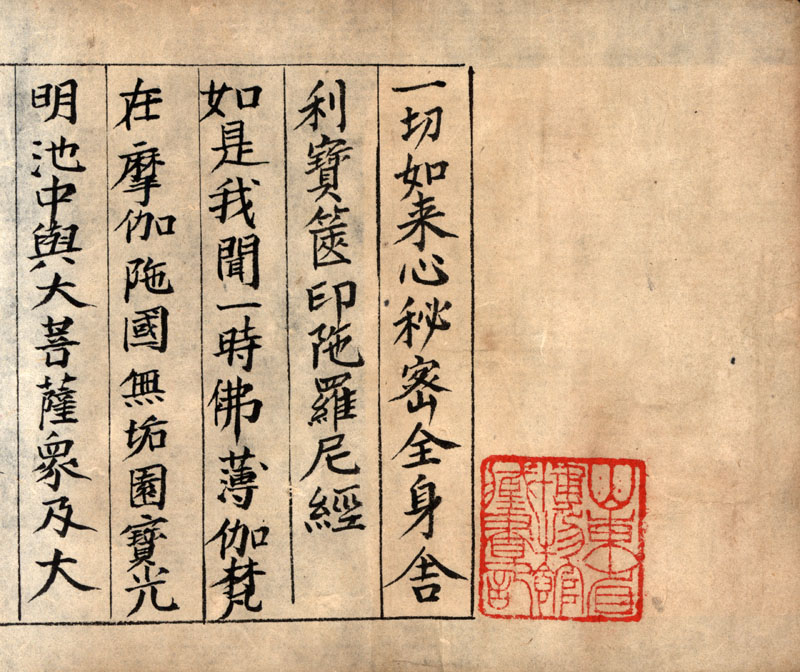 山東省
博物館
藏書記
一切如来心秘密全身舍
利寶篋印陁羅尼經
如是我聞一時佛薄伽梵
在摩伽陁國無垢園寶光
明池中與大菩薩衆及大